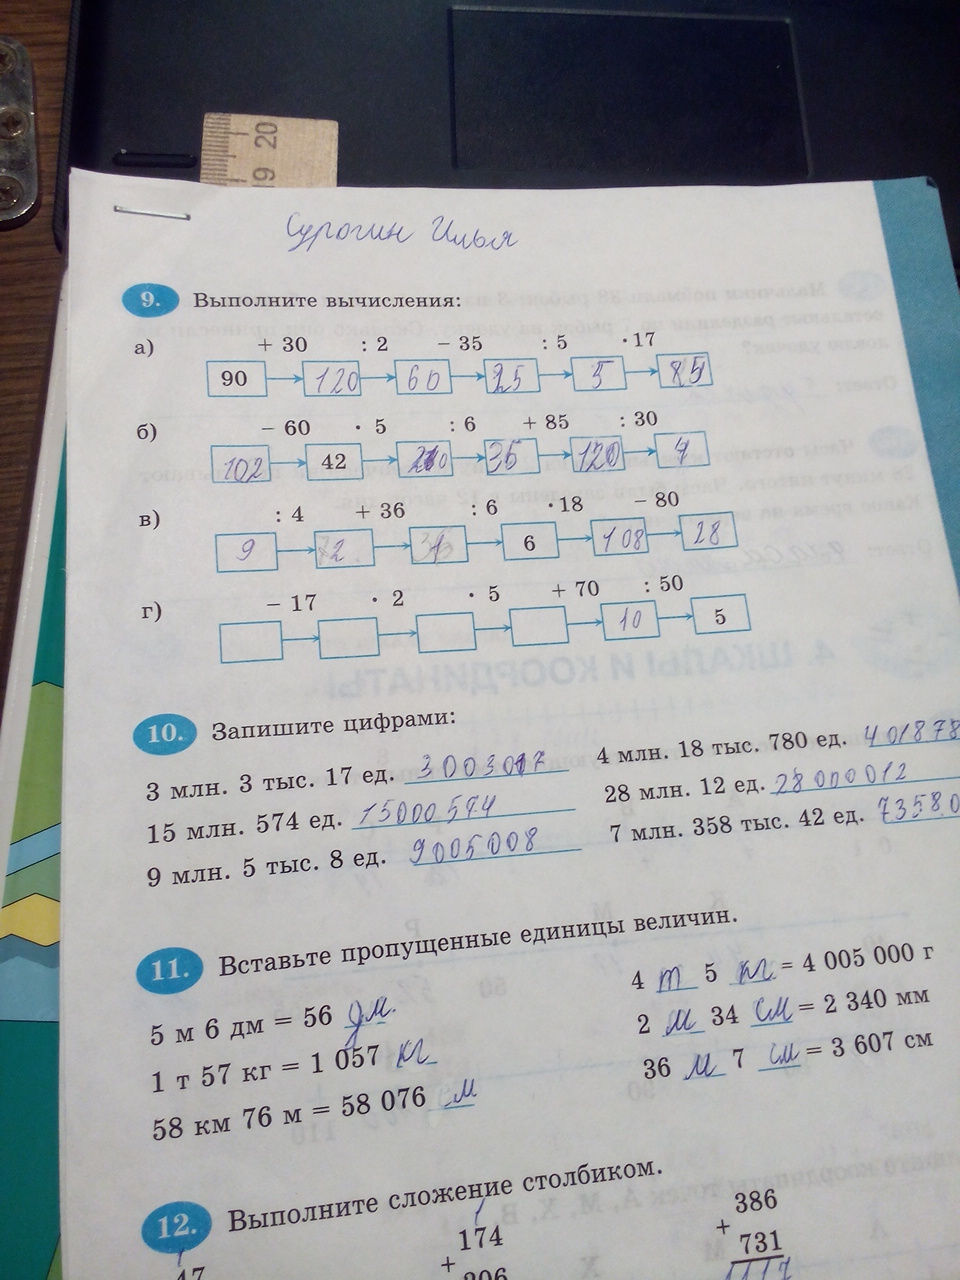 19 20
Сурогин Илья
9. Выполните вычисления:
а) + 30 : 2 − 35 : 5 · 17
90 120 60 25 5 85
б) − 60 · 5 : 6 + 85 : 30
102 42 210 35 120 4
в) : 4 + 36 : 6 · 18 − 80
9 2 6 108 28
г) − 17 · 2 · 5 + 70 : 50
10 5
10. Запишите цифрами:
3 млн. 3 тыс. 17 ед. 3003017 4 млн. 18 тыс. 780 ед. 401878
15 млн. 574 ед. 15000574 28 млн. 12 ед. 28000012
9 млн. 5 тыс. 8 ед. 9005008 7 млн. 358 тыс. 42 ед. 73580
11. Вставьте пропущенные единицы величин.
5 м 6 дм = 56 дм. 4 т 5 кг = 4 005 000 г
1 т 57 кг = 1 057 кг 2 м 34 см = 2 340 мм
58 км 76 м = 58 076 м 36 м 7 см = 3 607 см
12. Выполните сложение столбиком.
1 1
47 + 174 + 386
206 731
1117